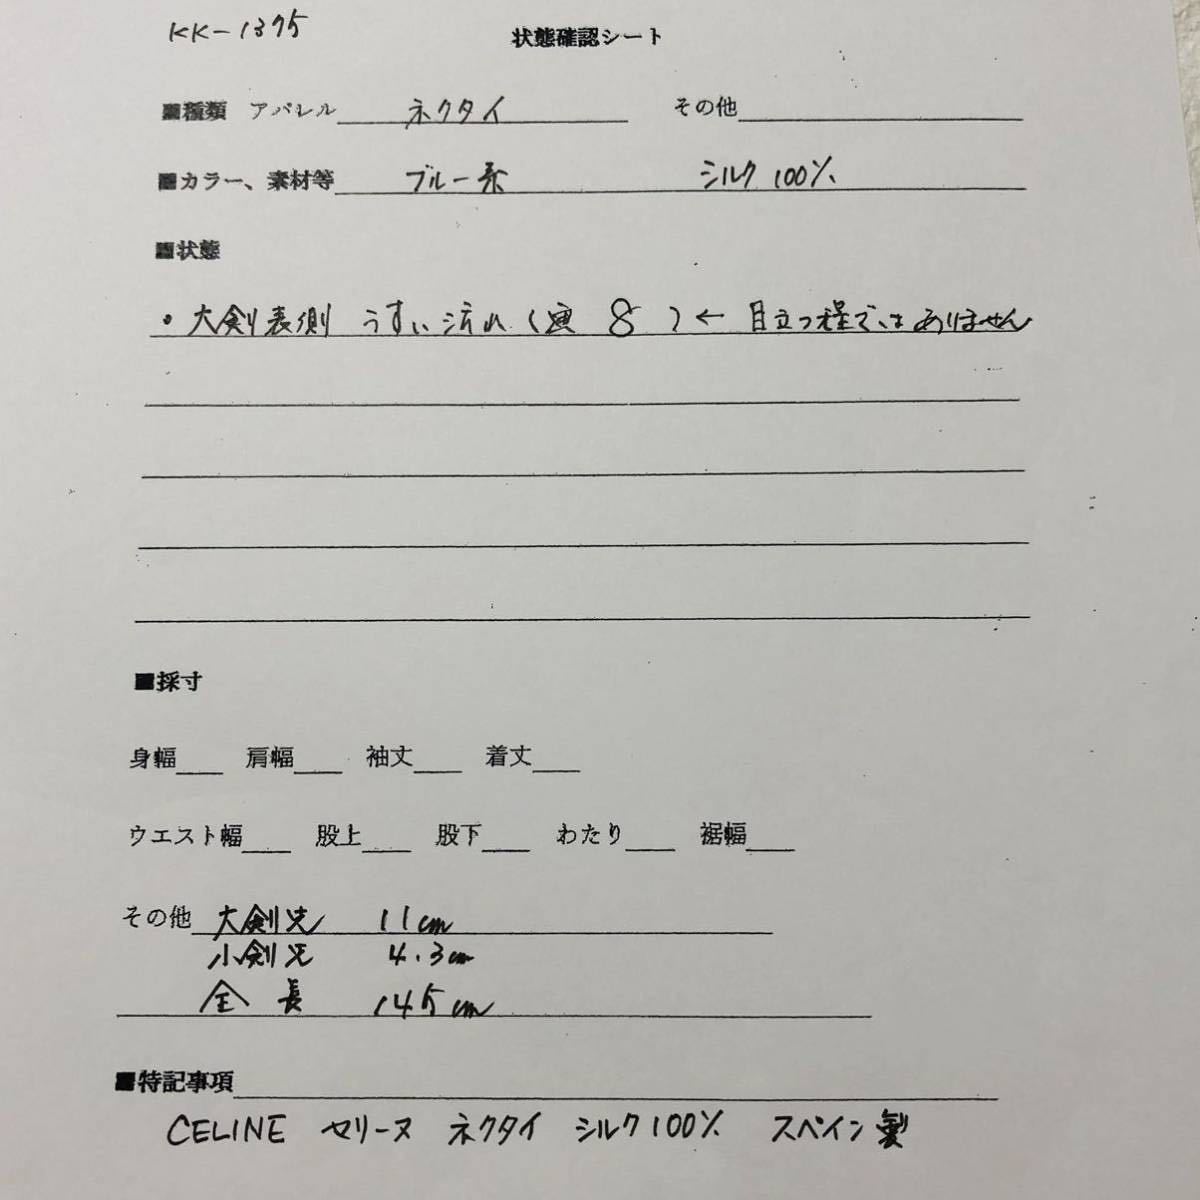 KK-1375
状態確認シート
■種類 アパレル ネクタイ その他
■カラー、素材等 ブルー系 シルク100%
■状態
・大剣表側 うすい流れ (画 8 ) ← 目立つ程ではありません
■採寸
身幅 肩幅 袖丈 着丈
ウエスト幅 股上 股下 わたり 裾幅
その他 大剣先 11cm
小剣先 4.3cm
全長 145cm
■特記事項
CELINE セリーヌ ネクタイ シルク100% スペイン製